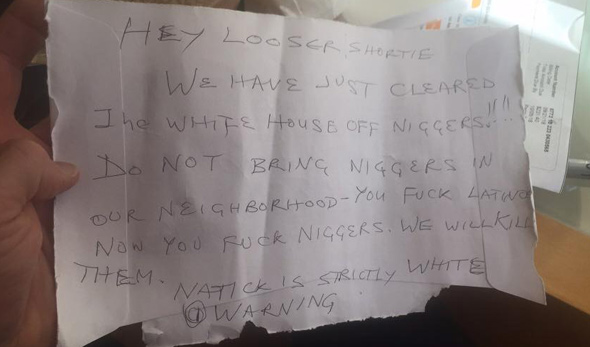 HEY LOOSER SHORTIE
WE HAVE JUST CLEARED
The WHITE HOUSE OFF NIGGERS!!!
DO NOT BRING NIGGERS IN
OUR NEIGHBORHOOD-YOU FUCK LATINO
NOW YOU FUCK NIGGERS. WE WILL KILL
THEM. NATICK IS STRICTLY WHITE
① WARNING